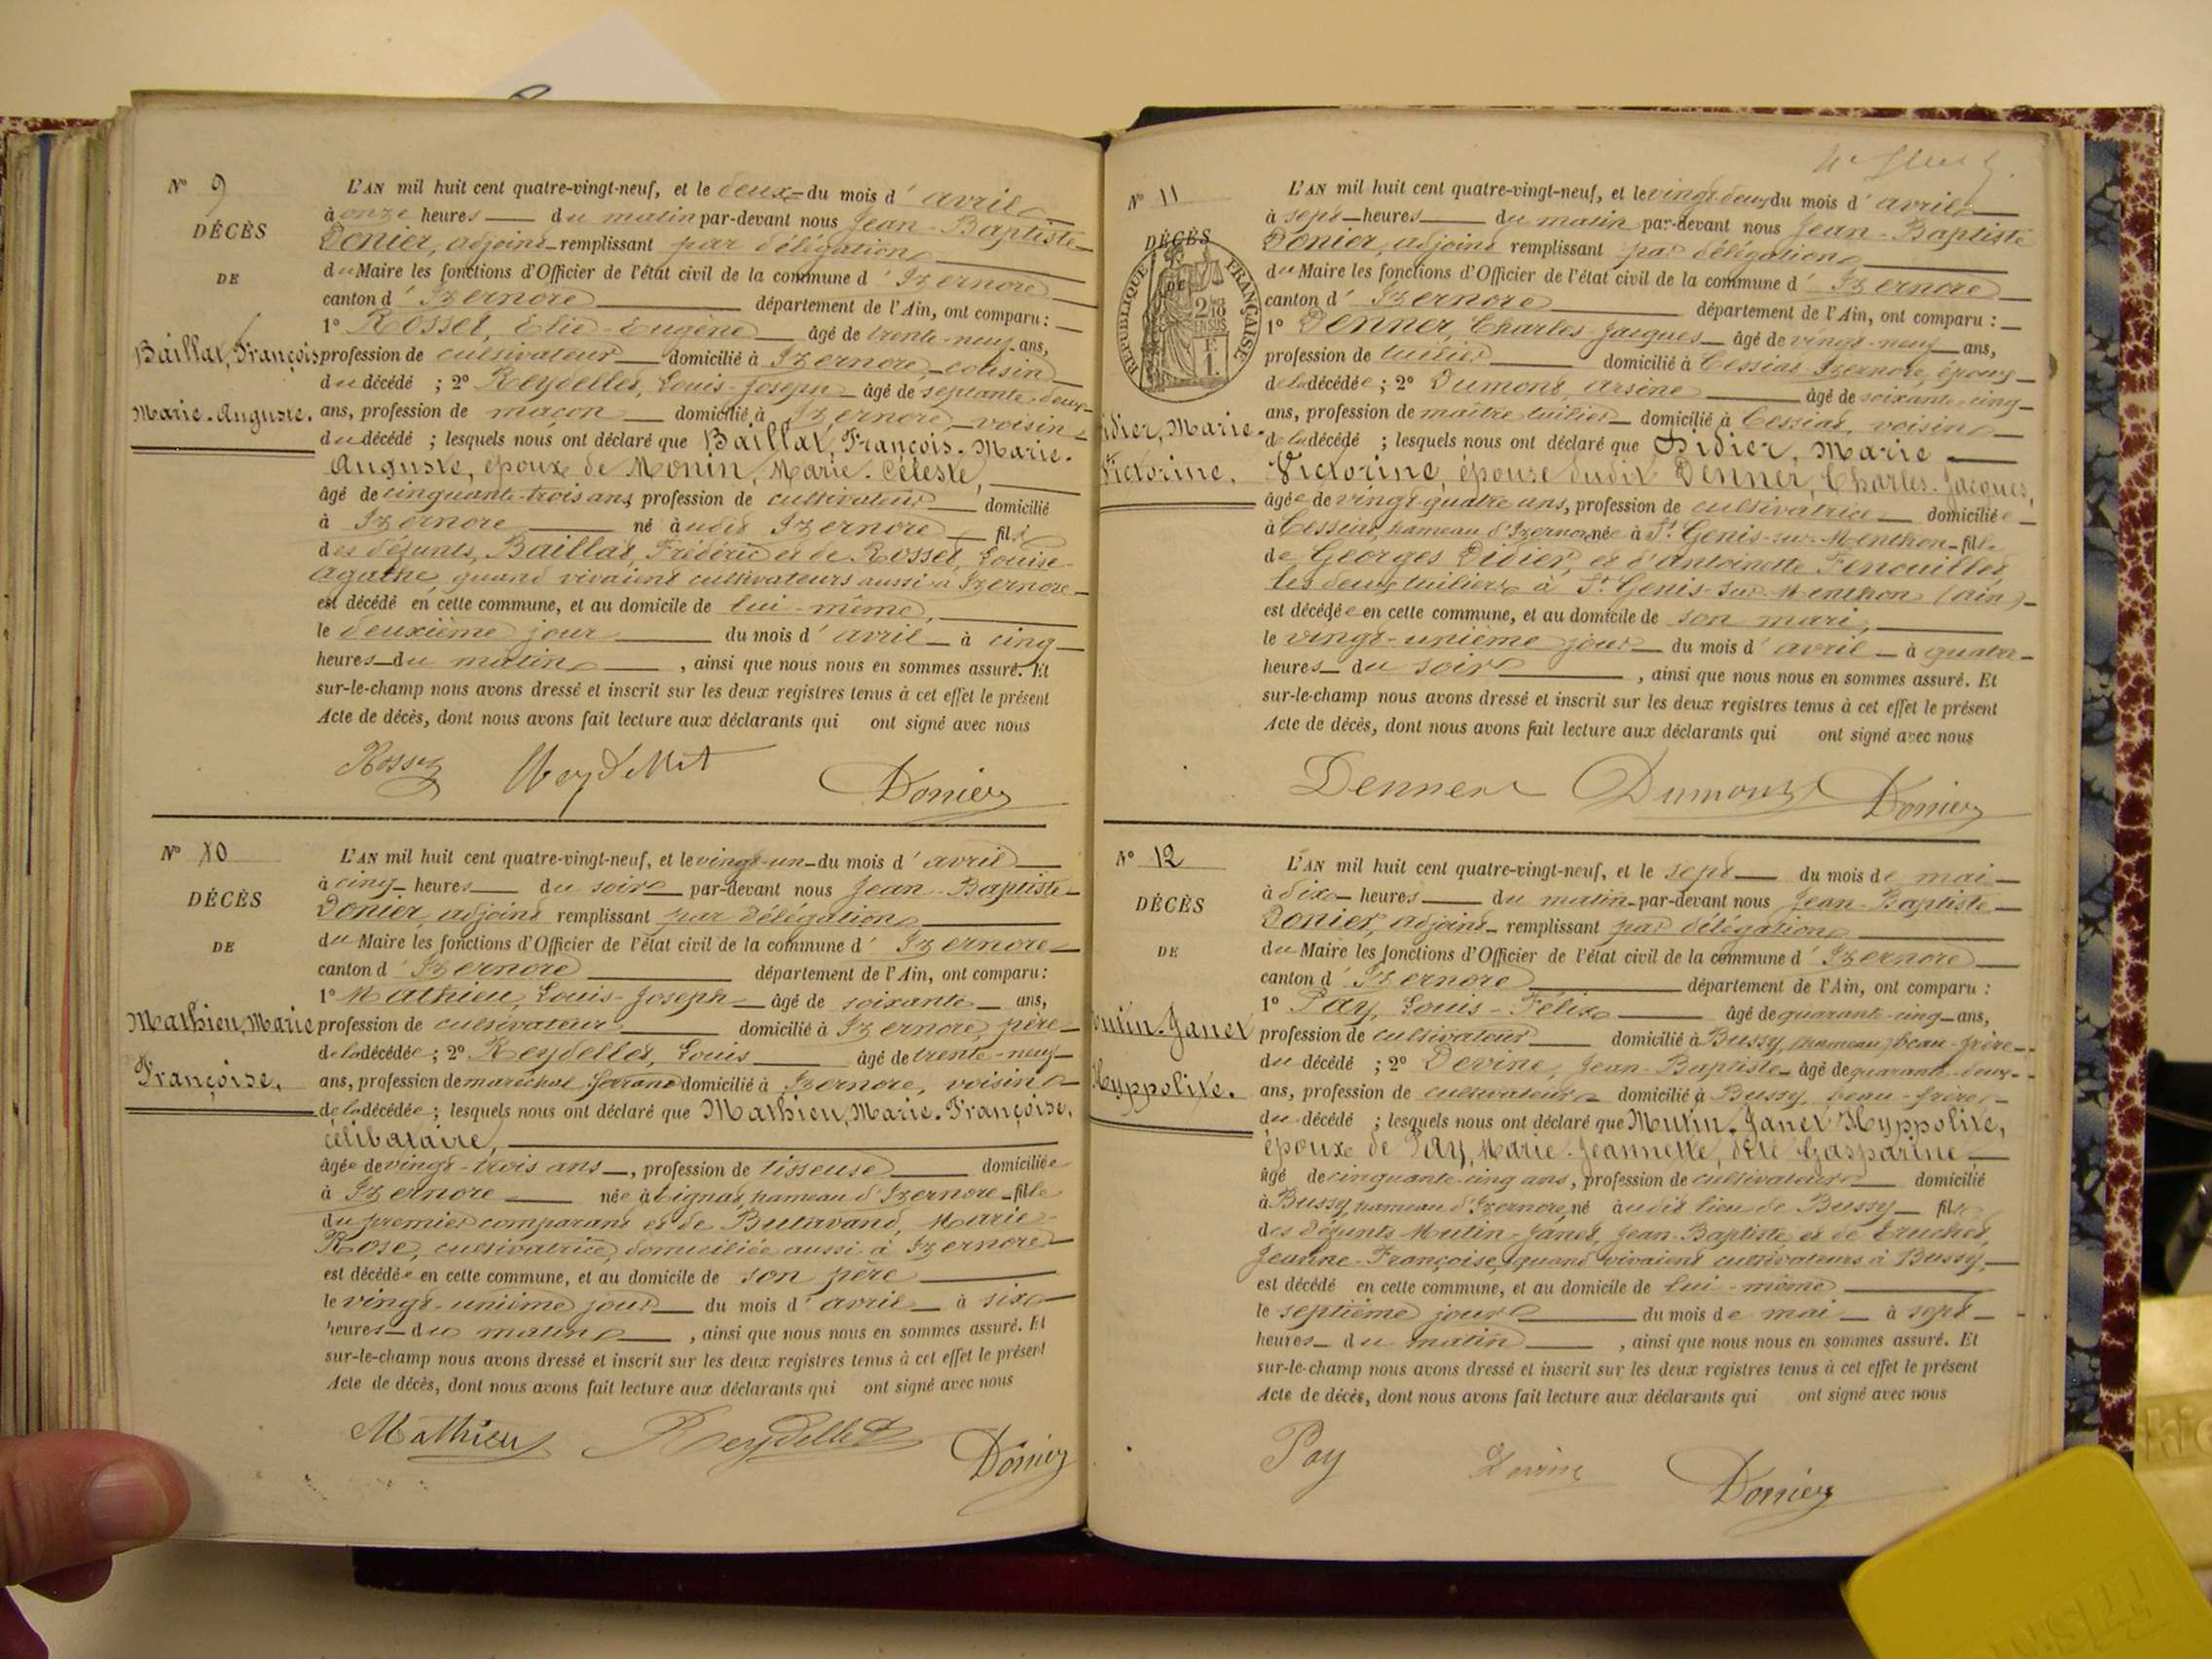 N° 9
DÉCÈS
DE
Baillat, François
Marie-Auguste.
L'AN mil huit cent quatre-vingt-neuf, et le deux du mois d'avril
à onze heures du matin par-devant nous Jean-Baptiste
Donier, adjoint remplissant par délégation
du Maire les fonctions d'Officier de l'état civil de la commune d'Izernore
canton d'Izernore département de l'Ain, ont comparu :
1° Rosset, Elie-Eugène âgé de trente-neuf ans,
profession de cultivateur domicilié à Izernore, cousin
du décédé ; 2° Reydellet, Louis-Joseph âgé de septante deux
ans, profession de maçon domicilié à Izernore, voisin
du décédé ; lesquels nous ont déclaré que Baillat, François-Marie-
Auguste, époux de Monin, Marie-Céleste,
âgé de cinquante-trois ans, profession de cultivateur domicilié
à Izernore né audit Izernore fils
des défunts, Baillat, Frédéric et de Rosset, Louise-
Agathe, quand vivaient cultivateurs aussi à Izernore
est décédé en cette commune, et au domicile de lui-même,
le deuxième jour du mois d'avril à cinq
heures du matin , ainsi que nous nous en sommes assuré. Et
sur-le-champ nous avons dressé et inscrit sur les deux registres tenus à cet effet le présent
Acte de décès, dont nous avons fait lecture aux déclarants qui ont signé avec nous
Rosset Reydellet Donier
N° 10
DÉCÈS
DE
Mathieu, Marie
Françoise.
L'AN mil huit cent quatre-vingt-neuf, et le vingt-un du mois d'avril
à cinq heures du soir par-devant nous Jean-Baptiste
Donier, adjoint remplissant par délégation
du Maire les fonctions d'Officier de l'état civil de la commune d'Izernore
canton d'Izernore département de l'Ain, ont comparu :
1° Mathieu, Louis-Joseph âgé de soixante ans,
profession de cultivateur domicilié à Izernore, père
de la décédée ; 2° Reydellet, Louis âgé de trente-neuf
ans, profession de maréchal ferrant domicilié à Izernore, voisin
de la décédée ; lesquels nous ont déclaré que Mathieu, Marie-Françoise,
célibataire,
âgée de vingt-trois ans, profession de tisseuse domiciliée
à Izernore née à Tignat, hameau d'Izernore fille
du premier comparant et de Butavand, Marie-
Rose, cultivatrice, domiciliée aussi à Izernore
est décédée en cette commune, et au domicile de son père
le vingt-unième jour du mois d'avril à six
heures du matin , ainsi que nous nous en sommes assuré. Et
sur-le-champ nous avons dressé et inscrit sur les deux registres tenus à cet effet le présent
Acte de décès, dont nous avons fait lecture aux déclarants qui ont signé avec nous
Mathieu Reydellet Donier
N° 11
DÉCÈS
RÉPUBLIQUE FRANÇAISE
idier, Marie-
Victorine.
L'AN mil huit cent quatre-vingt-neuf, et le vingt deux du mois d'avril
à sept heures du matin par-devant nous Jean-Baptiste
Donier, adjoint remplissant par délégation
du Maire les fonctions d'Officier de l'état civil de la commune d'Izernore
canton d'Izernore département de l'Ain, ont comparu :
1° Denner, Charles-Jacques âgé de vingt-neuf ans,
profession de tuilier domicilié à Cessiat Izernore, époux
de la décédée ; 2° Dumont, Arsène âgé de soixante-cinq
ans, profession de maître tuilier domicilié à Cessiat, voisin
de la décédé ; lesquels nous ont déclaré que Didier, Marie
Victorine, épouse dudit Denner, Charles-Jacques,
âgée de vingt-quatre ans, profession de cultivatrice domiciliée
à Cessiat, hameau d'Izernore née à St Genis-sur-Menthon fille
de Georges Didier, et d'Antoinette Fenouillet
les deux tuiliers à St Genis-sur-Menthon (Ain)
est décédée en cette commune, et au domicile de son mari,
le vingt-unième jour du mois d'avril à quatre
heures du soir , ainsi que nous nous en sommes assuré. Et
sur-le-champ nous avons dressé et inscrit sur les deux registres tenus à cet effet le présent
Acte de décès, dont nous avons fait lecture aux déclarants qui ont signé avec nous
Denner Dumont Donier
N° 12
DÉCÈS
DE
Mutin-Janet
Hyppolite.
L'AN mil huit cent quatre-vingt-neuf, et le sept du mois de mai
à dix heures du matin par-devant nous Jean-Baptiste
Donier, adjoint remplissant par délégation
du Maire les fonctions d'Officier de l'état civil de la commune d'Izernore
canton d'Izernore département de l'Ain, ont comparu :
1° Pay, Louis-Félix âgé de quarante-cinq ans,
profession de cultivateur domicilié à Bussy, (hameau) beau-frère
du décédé ; 2° Devine, Jean-Baptiste âgé de quarante-deux
ans, profession de cultivateur domicilié à Bussy, beau-frère
du décédé ; lesquels nous ont déclaré que Mutin-Janet Hyppolite,
époux de Pay, Marie-Jeannette, dite Gasparine
âgé de cinquante-cinq ans, profession de cultivateur domicilié
à Bussy, hameau d'Izernore, né audit lieu de Bussy fils
des défunts Mutin-Janet, Jean-Baptiste et de Truchet,
Jeanne-Françoise, quand vivaient cultivateurs à Bussy,
est décédé en cette commune, et au domicile de lui-même
le septième jour du mois de mai à sept
heures du matin , ainsi que nous nous en sommes assuré. Et
sur-le-champ nous avons dressé et inscrit sur les deux registres tenus à cet effet le présent
Acte de décès, dont nous avons fait lecture aux déclarants qui ont signé avec nous
Pay Devine Donier